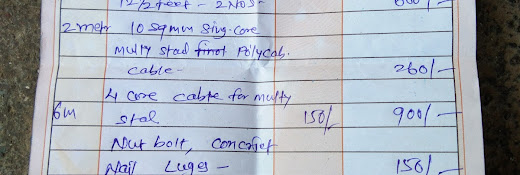 12/2 feet - 2 Nos-
2 metr 10 sqmm Sing-core
multy stad finot Polycab.
cable- 260/-
4 core cable for multy
6m stal 150/- 900/-
Nut bolt, concret
Nail Luges - 150/-